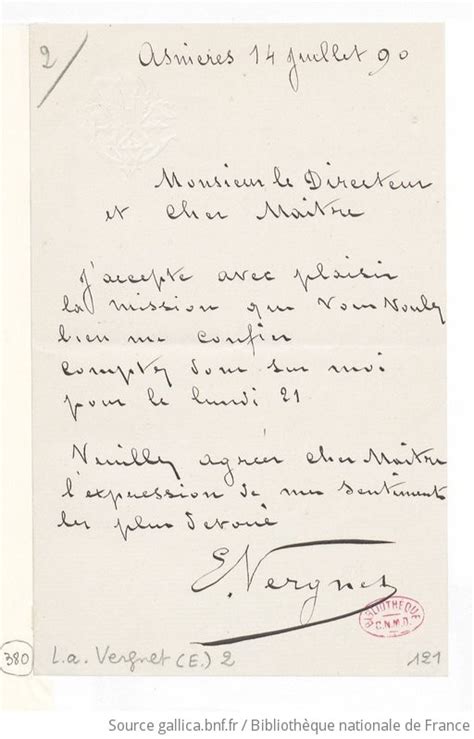 2/
Asnieres 14 juillet 90
Monsieur le Directeur
et cher Maitre
J'accepte avec plaisir
la mission que Vous Voulez
bien me confier
comptez donc sur moi
pour le lundi 21
Veuillez agréer cher Maitre
l'expression de mes sentiments
les plus devoué
E. Vergnet
BIBLIOTHÈQUE
C.N.M.D.
380 L.a. Vergnet (E.) 2 121
Source gallica.bnf.fr / Bibliothèque nationale de France